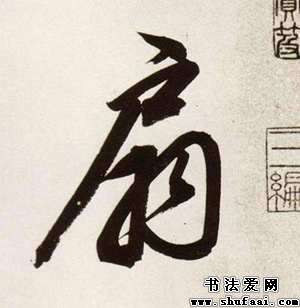 扇
二
編
书法爱网
www.shufaai.com